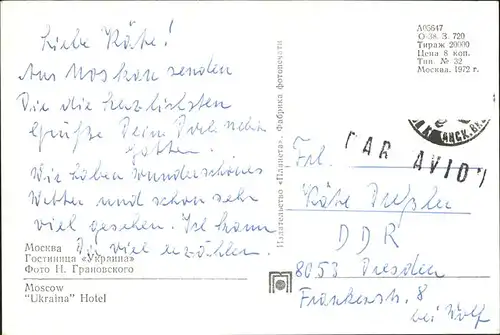 Liebe Käte!
Aus Moskau senden
Dir die herzlichsten
Grüße Deine
Wir haben wunderschönes
Wetter und schon sehr
viel gesehen. Ich kann
Dir viel erzählen.
Москва
Гостиница «Украина»
Фото Н. Грановского
Moscow
"Ukraina" Hotel
Издательство «Планета». Фабрика фотопечати
А05647
О-38. З. 720
Тираж 20000
Цена 8 коп.
Тип. № 32
Москва. 1972 г.
PAR AVION
Frl.
Käte
DDR
8053 Dresden
Frankenstr. 8
bei Wolf